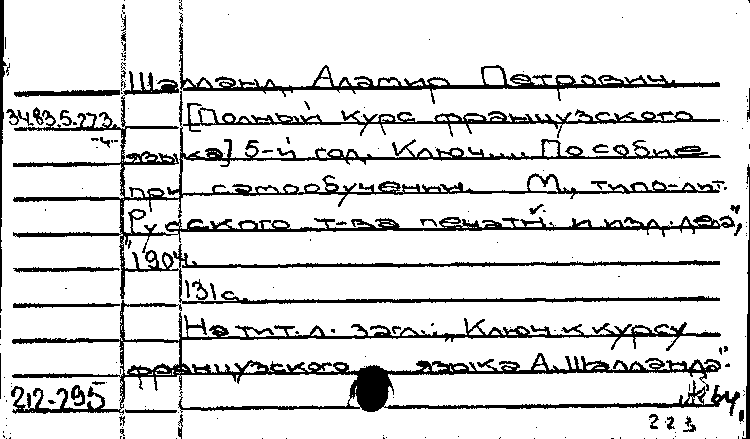 Шалланд, Адамир Петрович.
34.83.5.273. [Полный курс французского
-4- языка] 5-й год. Ключ... Пособие
при самообучении. М., типо-лит.
Русского т-ва печатн. и изд. дела,
1904.
131 с.
На тит. л. загл.: „Ключ к курсу
французского языка А. Шалланда".
212-295
223